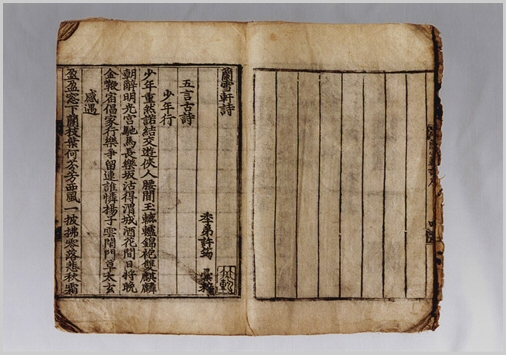 蘭雪軒詩
季弟許筠
五言古詩
少年行
少年重然諾結交遊俠人腰間玉轆轤錦袍雙麒麟
朝辭明光宮馳馬長樂坂沽得渭城酒花間日將晚
金鞭宿倡家行樂爭留連誰憐揚子雲閉門草太玄
感遇
盈盈窓下蘭枝葉何芬芳西風一披拂零落悲秋霜